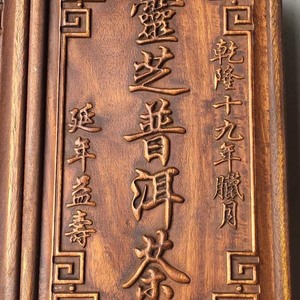 乾隆十九年臘月
靈芝普洱茶
延年益壽